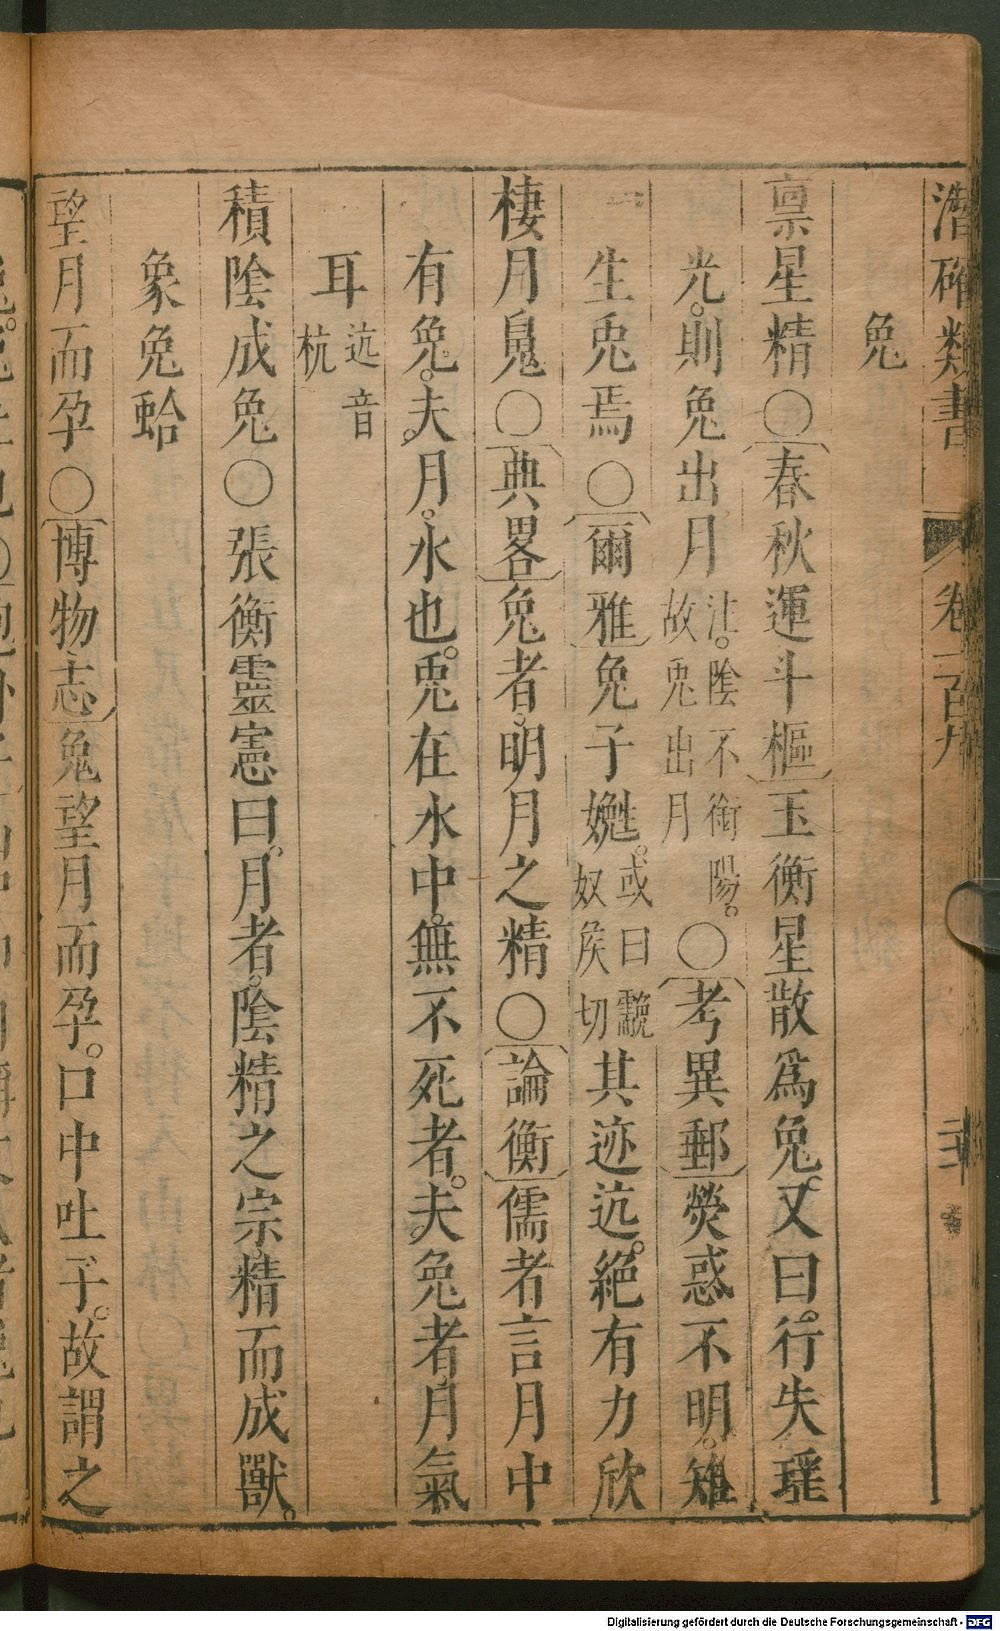 潛確類書 卷一百九 三
兔
稟星精○春秋運斗樞玉衡星散爲兔。又曰。行失瑤
光。則兔出月 注。陰不銜陽。故兎出月 ○考異郵熒惑不明。雉
生兎焉○爾雅兔子嬎。或曰䨲 奴侯切 其迹迒。絕有力欣
棲月㒵○典畧兔者。明月之精○論衡儒者言月中
有兔。夫月。水也。兎在水中。無不死者。夫兔者月氣
耳 迒音杭
積陰成兔○張衡靈憲曰。月者。陰精之宗。精而成獸。
象兔蛤
望月而孕○博物志兔望月而孕。口中吐子。故謂之
Digitalisierung gefördert durch die Deutsche Forschungsgemeinschaft - DFG